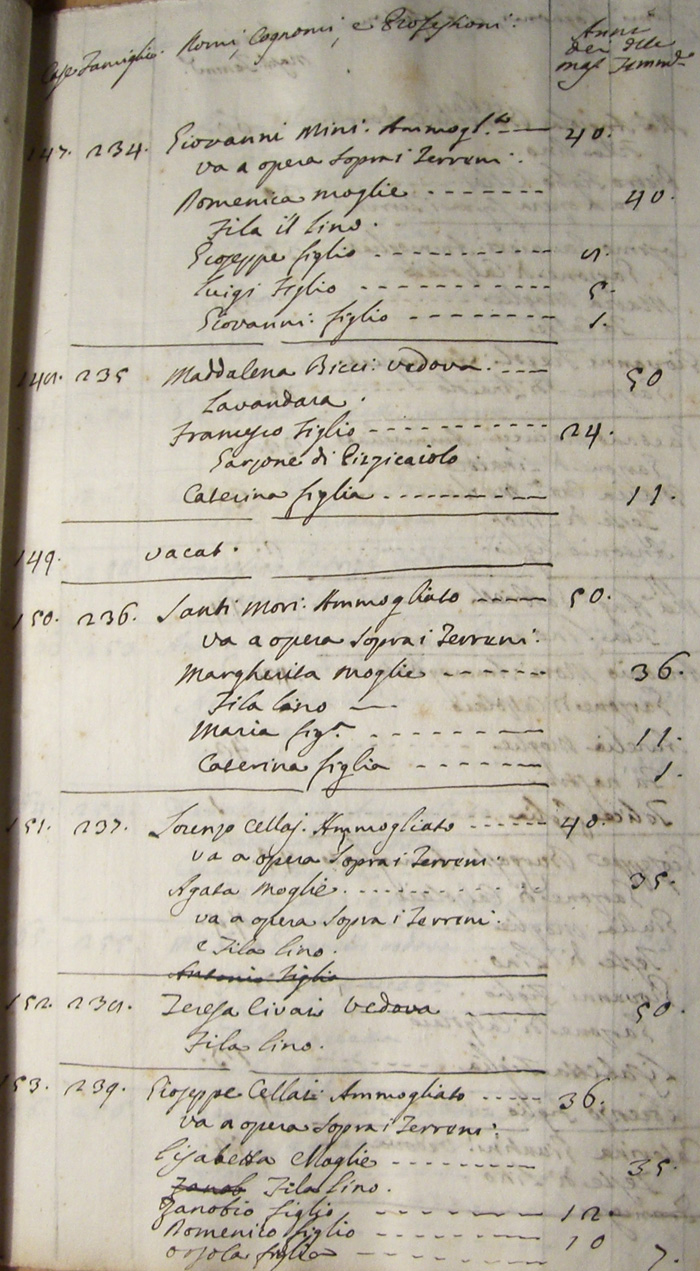 Case Famiglie. Nomi, Cognomi, e Professioni. Anni dei Mas. delle Femm.
147. 234. Giovanni Mini: Ammogl.to — 40.
va a opera Sopra i Terreni.
Domenica moglie - - - - - - 40.
Fila il lino.
Gioseppe figlio - - - - - - - - - 8.
Luigi Figlio - - - - - - - - - 5.
Giovanni: figlio - - - - - - - - 1.
148. 235 Maddalena Bicci: vedova. - - - 50
Lavandara.
Francesco Figlio - - - - - - - - - 24.
Garzone di Pizzicaiolo
Caterina figlia - - - - - - - - - 11.
149. vacat.
150. 236. Santi Mori: Ammogliato - - - - 50.
va a opera Sopra i Terreni.
Margherita moglie - - - - - - 36.
Fila lino —
Maria fig.a - - - - - - - - - 11.
Caterina figlia - - - - - - - - 1.
151. 237. Lorenzo Cellai. Ammogliato - - - - - 40.
va a opera Sopra i Terreni.
Agata Moglie - - - - - - - - - 35.
va a opera Sopra i Terreni.
e Fila lino.
Antonio Figlio
152. 238. Teresa Vedova — 50.
Fila lino.
153. 239. Gioseppe Cellai: Ammogliato - - - - 36.
va a opera Sopra i Terreni.
Elisabetta Moglie - - - - - - - - 35.
Zanob Fila lino.
Zanobio figlio - - - - - - - 12.
Domenico figlio - - - - - - - 10
Orsola figlia - - - - - - - 7.